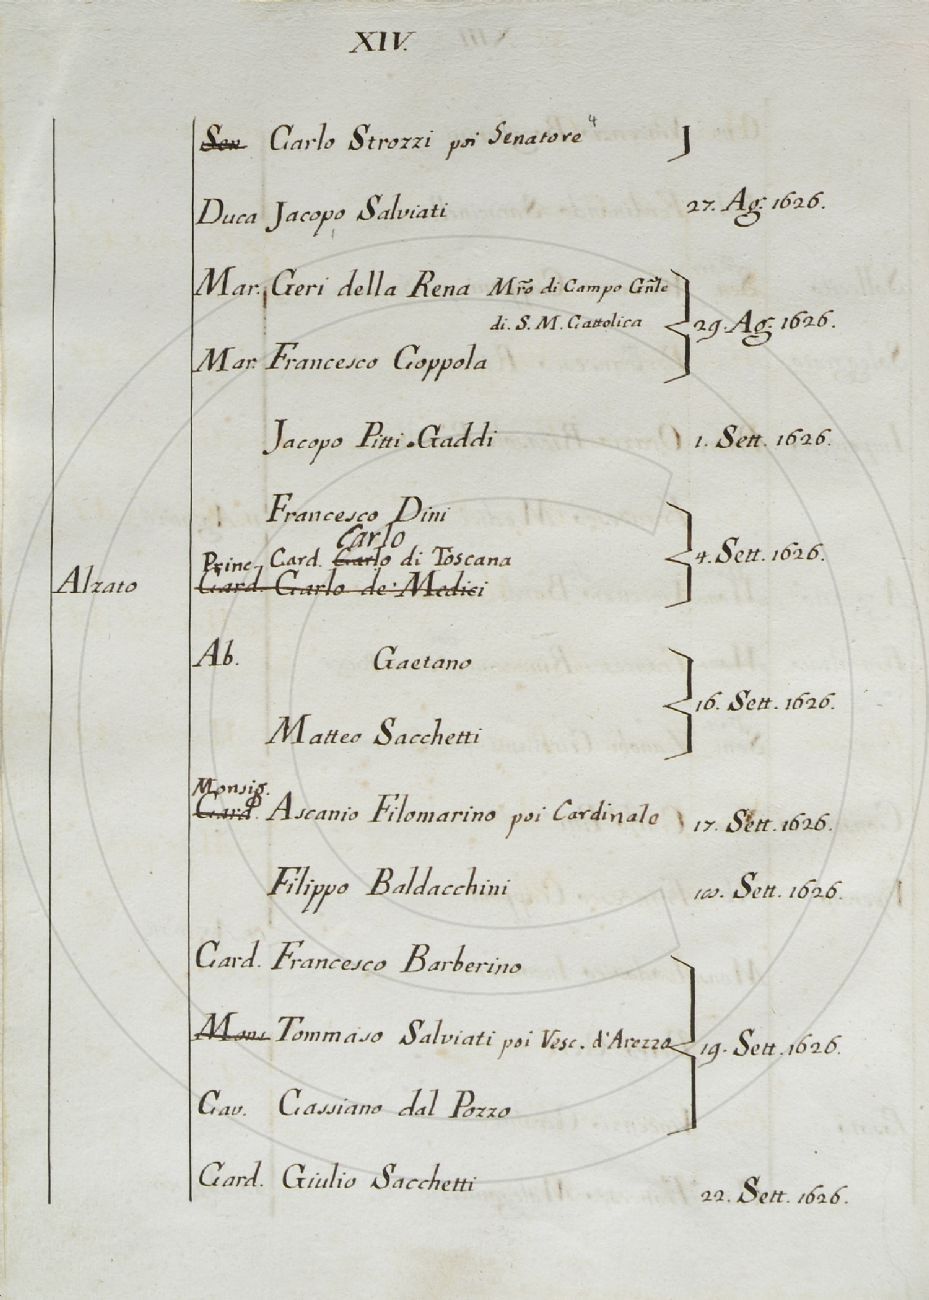 XIV.
Sen Carlo Strozzi poi Senatore 4
Duca Jacopo Salviati 27. Ag. 1626.
Mar. Geri della Rena Mrõ di Campo Gñle
di. S. M. Cattolica 29. Ag. 1626.
Mar. Francesco Coppola
Jacopo Pitti. Gaddi 1. Sett. 1626.
Francesco Dini
Carlo
Princ. Card. Carlo di Toscana 4. Sett. 1626.
Alzato Card. Carlo de' Medici
Ab. Gaetano
16. Sett. 1626.
Matteo Sacchetti
Monsig.
Card. Ascanio Filomarino poi Cardinale 17. Sett. 1626.
Filippo Baldacchini Sett. 1626.
Card. Francesco Barberino
Mons Tommaso Salviati poi Vesc. d'Arezzo 19. Sett. 1626.
Cav. Cassiano dal Pozzo
Card. Giulio Sacchetti 22. Sett. 1626.